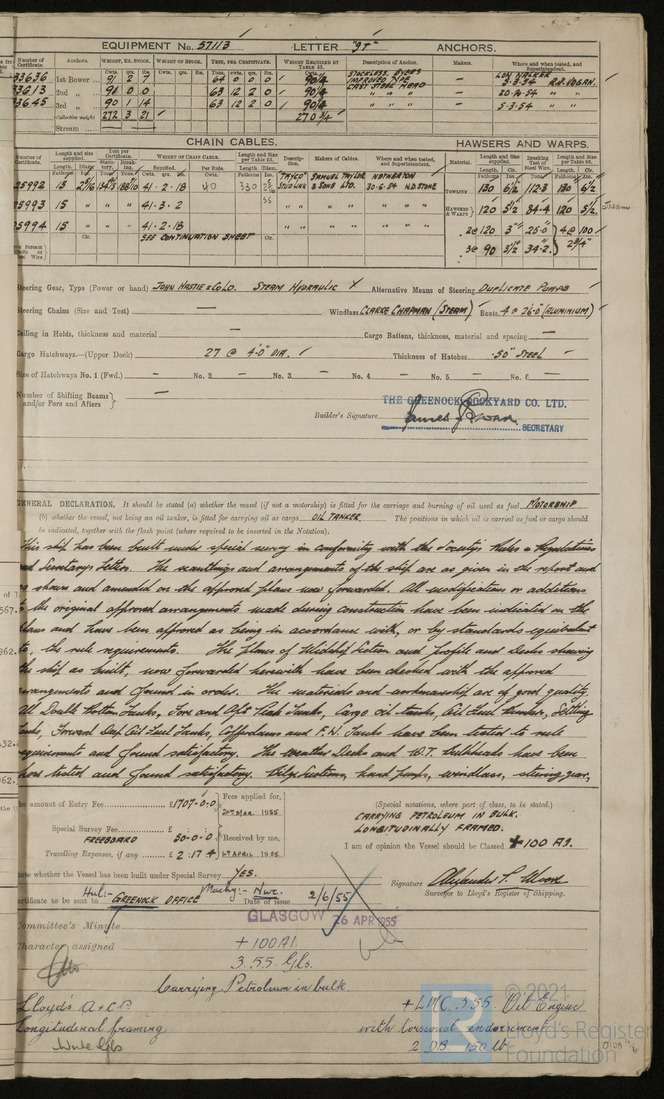 EQUIPMENT No. 57113 LETTER "9†" ANCHORS.
Number of Certificate. Anchors. WEIGHT, EX. STOCK. WEIGHT OF STOCK. TEST, PER CERTIFICATE. WEIGHT REQUIRED BY TABLE 53. Description of Anchor. Makers. Where and when tested, and Superintendent.
Cwts. qrs. lbs. Cwts. qrs. lbs. Tons. cwts. qrs. lbs. Cwts.
93636 1st Bower 91 2 7 64 0 0 0 90/4 STOCKLESS BYERS IMPROVED TYPE CAST STEEL HEAD 3.3.54
93613 2nd " 91 0 0 63 12 2 0 90/4 " " " 20.10.54 " "
93645 3rd " 90 1 14 63 12 2 0 90/4 " " " 5.3.54 " "
Collective weight 272 3 21 270 3/4
Stream
CHAIN CABLES. HAWSERS AND WARPS.
Number of Certificate. Length and size supplied. Test per Certificate. WEIGHT OF CHAIN CABLE. Length and Size per Table 53. Description. Makers of Cables. Where and when tested, and Superintendent. Material. Length and size supplied. Breaking Test of Steel Wire. Length and Size per Table 53.
25992 15 2 9/16 41.2.18 330 "TAYCO" STUD LINK SAMUEL TAYLOR & SONS LTD. NETHERTON 30-6-54 N.D. STONE TOWLINE 130 6½ 112.3 130 6½
25993 15 " " " 41.3.2 " " " " " HAWSERS & WARPS 120 5½ 84.4 120 5½
25994 15 " " " 41.2.18 " " " " " 2@ 120 3" 25.0 4@ 100
SEE CONTINUATION SHEET 3@ 90 3½ 34.2 2¾"
Steering Gear, Type (Power or hand) JOHN HASTIE & CO LD. STEAM HYDRAULIC Alternative Means of Steering DUPLICATE PUMPS
Steering Chains (Size and Test) — Windlass CLARKE CHAPMAN (STEAM) Boats 4 @ 26.0 (ALUMINIUM)
Ceiling in Holds, thickness and material — Cargo Battens, thickness, material and spacing —
Cargo Hatchways.—(Upper Deck) 27 @ 4'.0" DIA. Thickness of Hatches .50" STEEL
Size of Hatchways No. 1 (Fwd.) — No. 2 — No. 3 — No. 4 — No. 5 — No. 6 —
Number of Shifting Beams and/or Fore and Afters } —
THE GREENOCK DOCKYARD CO. LTD.
Builder's Signature
SECRETARY
GENERAL DECLARATION. It should be stated (a) whether the vessel (if not a motorship) is fitted for the carriage and burning of oil used as fuel MOTORSHIP
(b) whether the vessel, not being an oil tanker, is fitted for carrying oil as cargo OIL TANKER The positions in which oil is carried as fuel or cargo should
be indicated, together with the flash point (where required to be inserted in the Notation).
This ship has been built under special survey in conformity with the Society's Rules & Regulations
and Secretary's Letters. The scantlings and arrangements of the ship are as given in the report and
as shown and amended on the approved plans now forwarded. All modifications or additions
to the original approved arrangements made during construction have been indicated on the
plans and have been approved as being in accordance with, or by standards equivalent
to, the rule requirements. The plans of Midship Section and Profile and Decks showing
the ship as built, now forwarded herewith have been checked with the approved
arrangements and found in order. The materials and workmanship are of good quality.
All Double Bottom Tanks, Fore and Aft Peak Tanks, Cargo oil tanks, Oil Fuel Bunker, Settling
tanks, Forward Deep Oil Fuel Tanks, Cofferdams and F.W. Tanks have been tested to rule
requirements and found satisfactory. The weather Decks and W.T. bulkheads have been
hose tested and found satisfactory. Bilge suctions, hand pumps, windlass, steering gear,
The amount of Entry Fee £1707-0-0 Fees applied for, 2nd Mar. 1955
Special Survey Fee £
FREEBOARD 50-0-0 Received by me,
Travelling Expenses, if any £ 2.17.4 1st APRIL 1955
(Special notations, where part of class, to be stated.)
CARRYING PETROLEUM IN BULK.
LONGITUDINALLY FRAMED.
I am of opinion the Vessel should be Classed +100 A1.
State whether the Vessel has been built under Special Survey YES.
Signature
Surveyor to Lloyd's Register of Shipping.
Hul:- GREENOCK OFFICE Machy:- Nwc.
Certificate to be sent to Date of issue 2/6/55
GLASGOW 26 APR 1955
Committee's Minute
Character assigned +100A1.
3.55 Gls.
Carrying Petroleum in bulk
Lloyd's A & CP.
Longitudinal framing
+LMC 3.55 Oil Engine
with torsional endorsement
2 DB 150 lb
© 2021
Lloyd's Register
Foundation